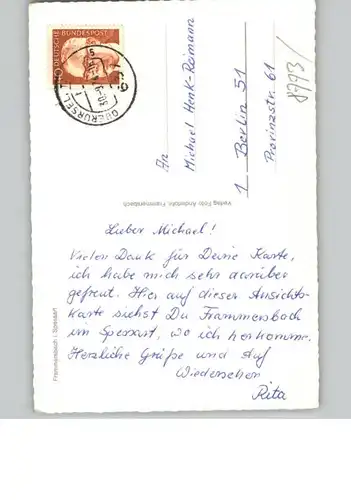 DEUTSCHE BUNDESPOST
OBERURSEL
8793/
An
Michael Henk-Reimann
1 Berlin 51
Provinzstr. 61
Verlag Foto Anderlohr, Frammersbach
Frammersbach i. Spessart
Lieber Michael!
Vielen Dank für Deine Karte,
ich habe mich sehr darüber
gefreut. Hier auf dieser Ansichts-
karte siehst Du Frammersbach
im Spessart, wo ich herkomme.
Herzliche Grüße und Auf
Wiedersehen
Rita